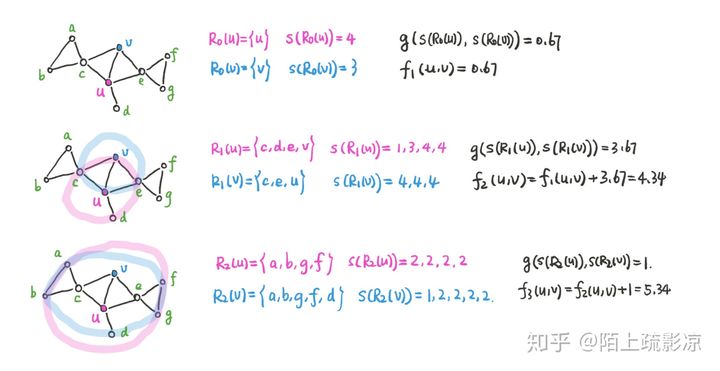 a
v
f
b
c
e
u
g
d
R₀(u)={u} s(R₀(u))=4
R₀(v)={v} s(R₀(v))=3
g(s(R₀(u)), s(R₀(v)))=0.67
f₁(u,v)=0.67
a
v
f
b
c
e
u
g
d
R₁(u)={c,d,e,v} s(R₁(u))=1,3,4,4
R₁(v)={c,e,u} s(R₁(v))=4,4,4
g(s(R₁(u)),s(R₁(v)))=3.67
f₂(u,v)=f₁(u,v)+3.67=4.34
a
v
f
b
c
e
u
g
d
R₂(u)={a,b,g,f} s(R₂(u))=2,2,2,2
R₂(v)={a,b,g,f,d} s(R₂(v))=1,2,2,2,2.
g(s(R₂(u)),s(R₂(v))=1.
f₃(u,v)=f₂(u,v)+1=5.34
知乎 @陌上疏影凉